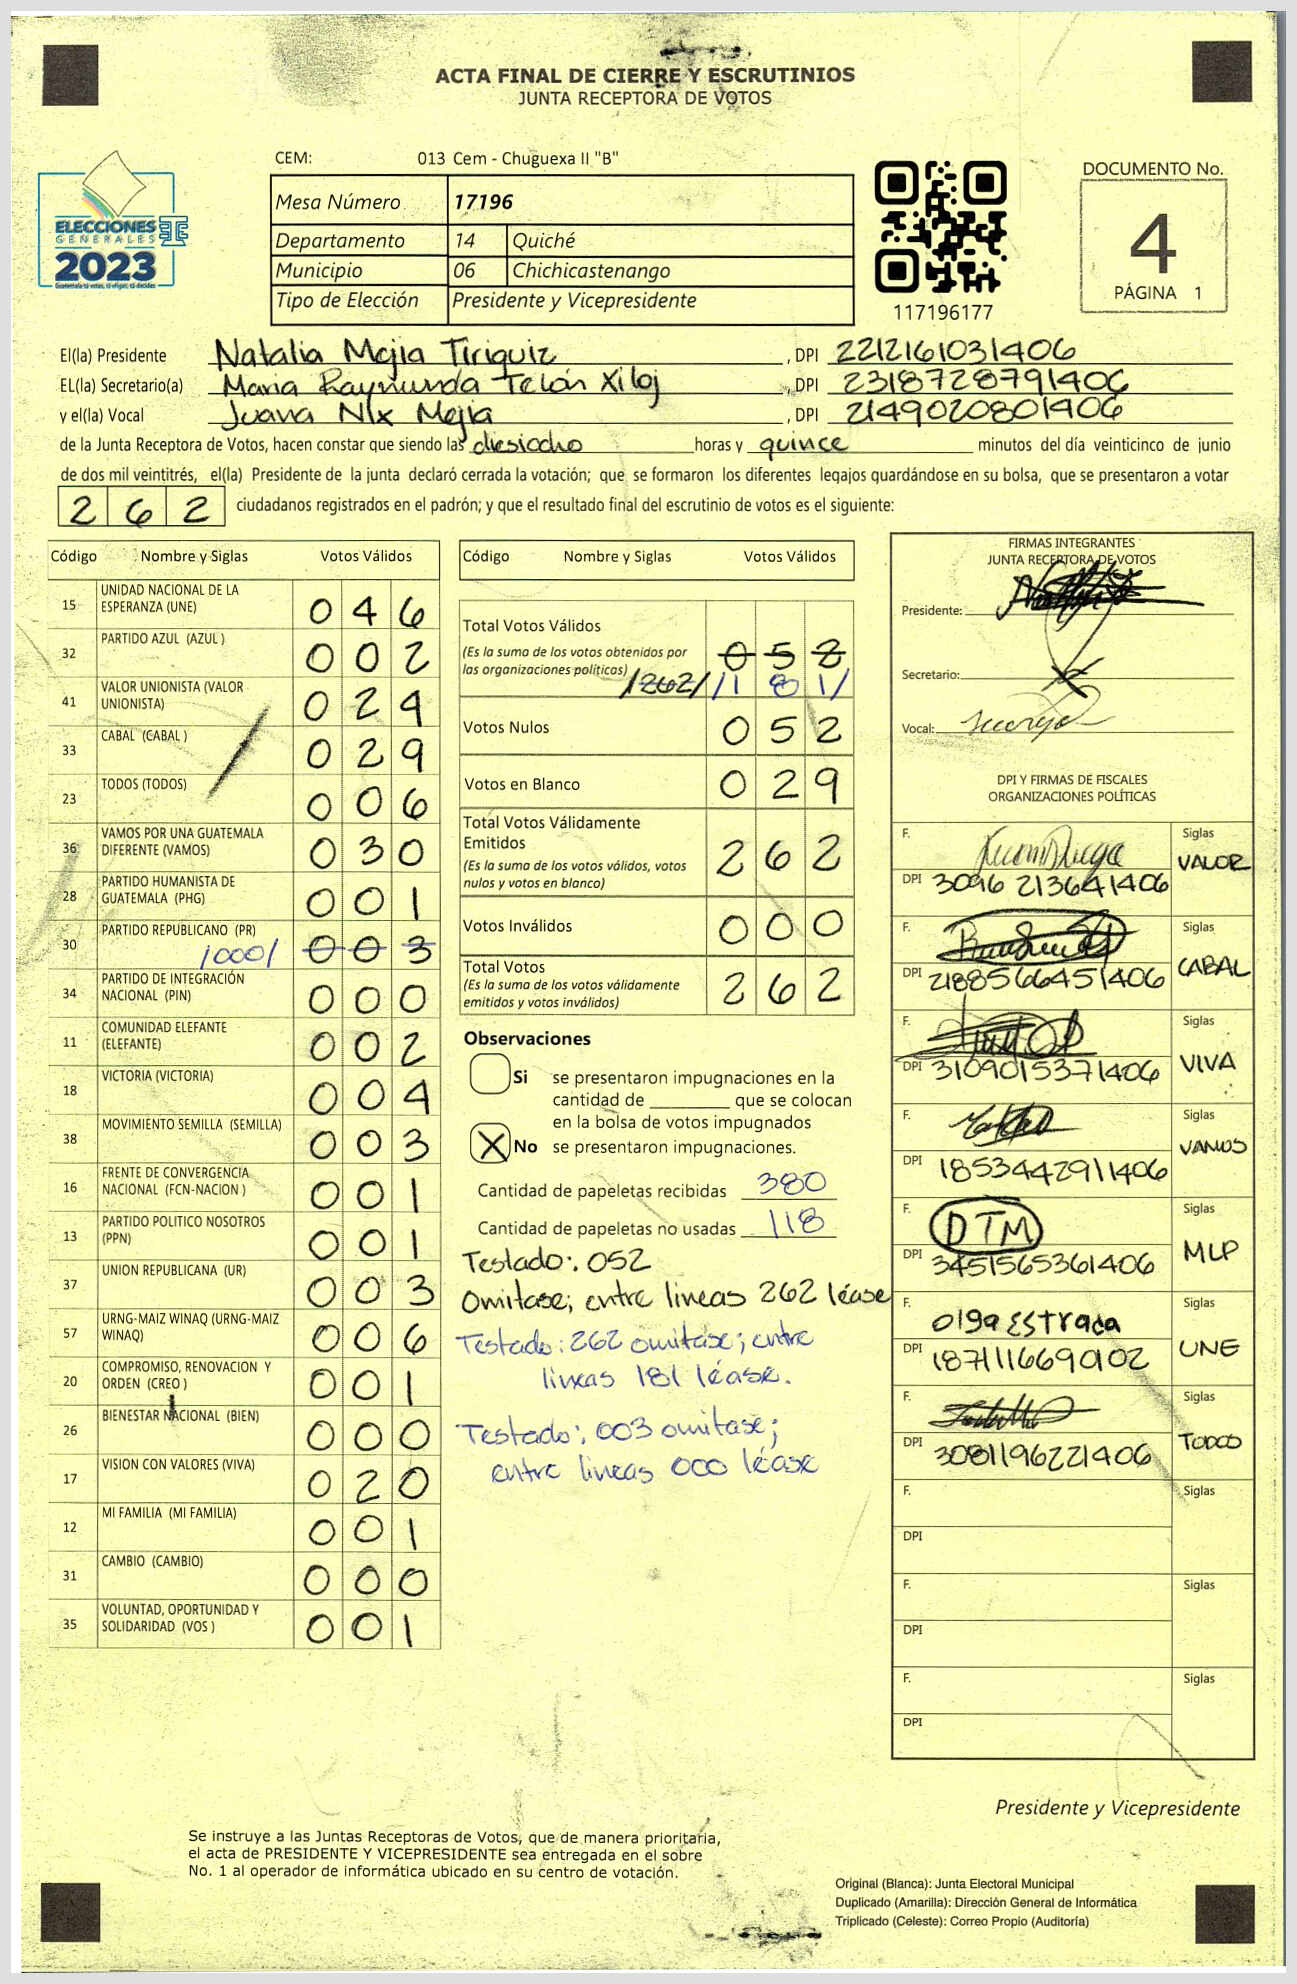 ACTA FINAL DE CIERRE Y ESCRUTINIOS
JUNTA RECEPTORA DE VOTOS
CEM: 013 Cem - Chuguexa II "B"
ELECCIONES
GENERALES
2023
Guatemala tú votas, tú eliges, tú decides
Mesa Número 17196
Departamento 14 Quiché
Municipio 06 Chichicastenango
Tipo de Elección Presidente y Vicepresidente
117196177
DOCUMENTO No.
4
PÁGINA 1
El(la) Presidente Natalia Mejia Tiriquiz , DPI 2212161031406
EL(la) Secretario(a) Maria Raymunda Telón Xiloj , DPI 2318728791406
y el(la) Vocal Juana Nix Mejia , DPI 2149020801406
de la Junta Receptora de Votos, hacen constar que siendo las diesiocho horas y quince minutos del día veinticinco de junio
de dos mil veintitrés, el(la) Presidente de la junta declaró cerrada la votación; que se formaron los diferentes legajos guardándose en su bolsa, que se presentaron a votar
262 ciudadanos registrados en el padrón; y que el resultado final del escrutinio de votos es el siguiente:
Código Nombre y Siglas Votos Válidos
15 UNIDAD NACIONAL DE LA
ESPERANZA (UNE) 046
32 PARTIDO AZUL (AZUL ) 002
41 VALOR UNIONISTA (VALOR
UNIONISTA) 024
33 CABAL (CABAL ) 029
23 TODOS (TODOS) 006
36 VAMOS POR UNA GUATEMALA
DIFERENTE (VAMOS) 030
28 PARTIDO HUMANISTA DE
GUATEMALA (PHG) 001
30 PARTIDO REPUBLICANO (PR)
/000/ 003
34 PARTIDO DE INTEGRACIÓN
NACIONAL (PIN) 000
11 COMUNIDAD ELEFANTE
(ELEFANTE) 002
18 VICTORIA (VICTORIA) 004
38 MOVIMIENTO SEMILLA (SEMILLA) 003
16 FRENTE DE CONVERGENCIA
NACIONAL (FCN-NACION ) 001
13 PARTIDO POLITICO NOSOTROS
(PPN) 001
37 UNION REPUBLICANA (UR) 003
57 URNG-MAIZ WINAQ (URNG-MAIZ
WINAQ) 006
20 COMPROMISO, RENOVACION Y
ORDEN (CREO ) 001
26 BIENESTAR NACIONAL (BIEN) 000
17 VISION CON VALORES (VIVA) 020
12 MI FAMILIA (MI FAMILIA) 001
31 CAMBIO (CAMBIO) 000
35 VOLUNTAD, OPORTUNIDAD Y
SOLIDARIDAD (VOS ) 001
Código Nombre y Siglas Votos Válidos
Total Votos Válidos
(Es la suma de los votos obtenidos por
las organizaciones políticas) 052
/262/ /181/
Votos Nulos 052
Votos en Blanco 029
Total Votos Válidamente
Emitidos 262
(Es la suma de los votos válidos, votos
nulos y votos en blanco)
Votos Inválidos 000
Total Votos 262
(Es la suma de los votos válidamente
emitidos y votos inválidos)
Observaciones
Si se presentaron impugnaciones en la
cantidad de ________ que se colocan
en la bolsa de votos impugnados
X No se presentaron impugnaciones.
Cantidad de papeletas recibidas 380
Cantidad de papeletas no usadas 118
Testado: 052
Omitase; entre lineas 262 léase
Testado: 262 omitase; entre
lineas 181 léase.
Testado: 003 omitase;
entre lineas 000 léase
FIRMAS INTEGRANTES
JUNTA RECEPTORA DE VOTOS
Presidente:
Secretario:
Vocal:
DPI Y FIRMAS DE FISCALES
ORGANIZACIONES POLÍTICAS
F. Siglas
DPI 3096 213641406 VALOR
F. Siglas
DPI 2188566451406 CABAL
F. Siglas
DPI 3109015371406 VIVA
F. Siglas
DPI 1853442911406 VAMOS
F. DTM Siglas
DPI 3451565361406 MLP
F. Olga Estrada Siglas
DPI 1871116690102 UNE
F. Siglas
DPI 3081196221406 TODOS
F. Siglas
DPI
F. Siglas
DPI
F. Siglas
DPI
Presidente y Vicepresidente
Se instruye a las Juntas Receptoras de Votos, que de manera prioritaria,
el acta de PRESIDENTE Y VICEPRESIDENTE sea entregada en el sobre
No. 1 al operador de informática ubicado en su centro de votación.
Original (Blanca): Junta Electoral Municipal
Duplicado (Amarilla): Dirección General de Informática
Triplicado (Celeste): Correo Propio (Auditoría)